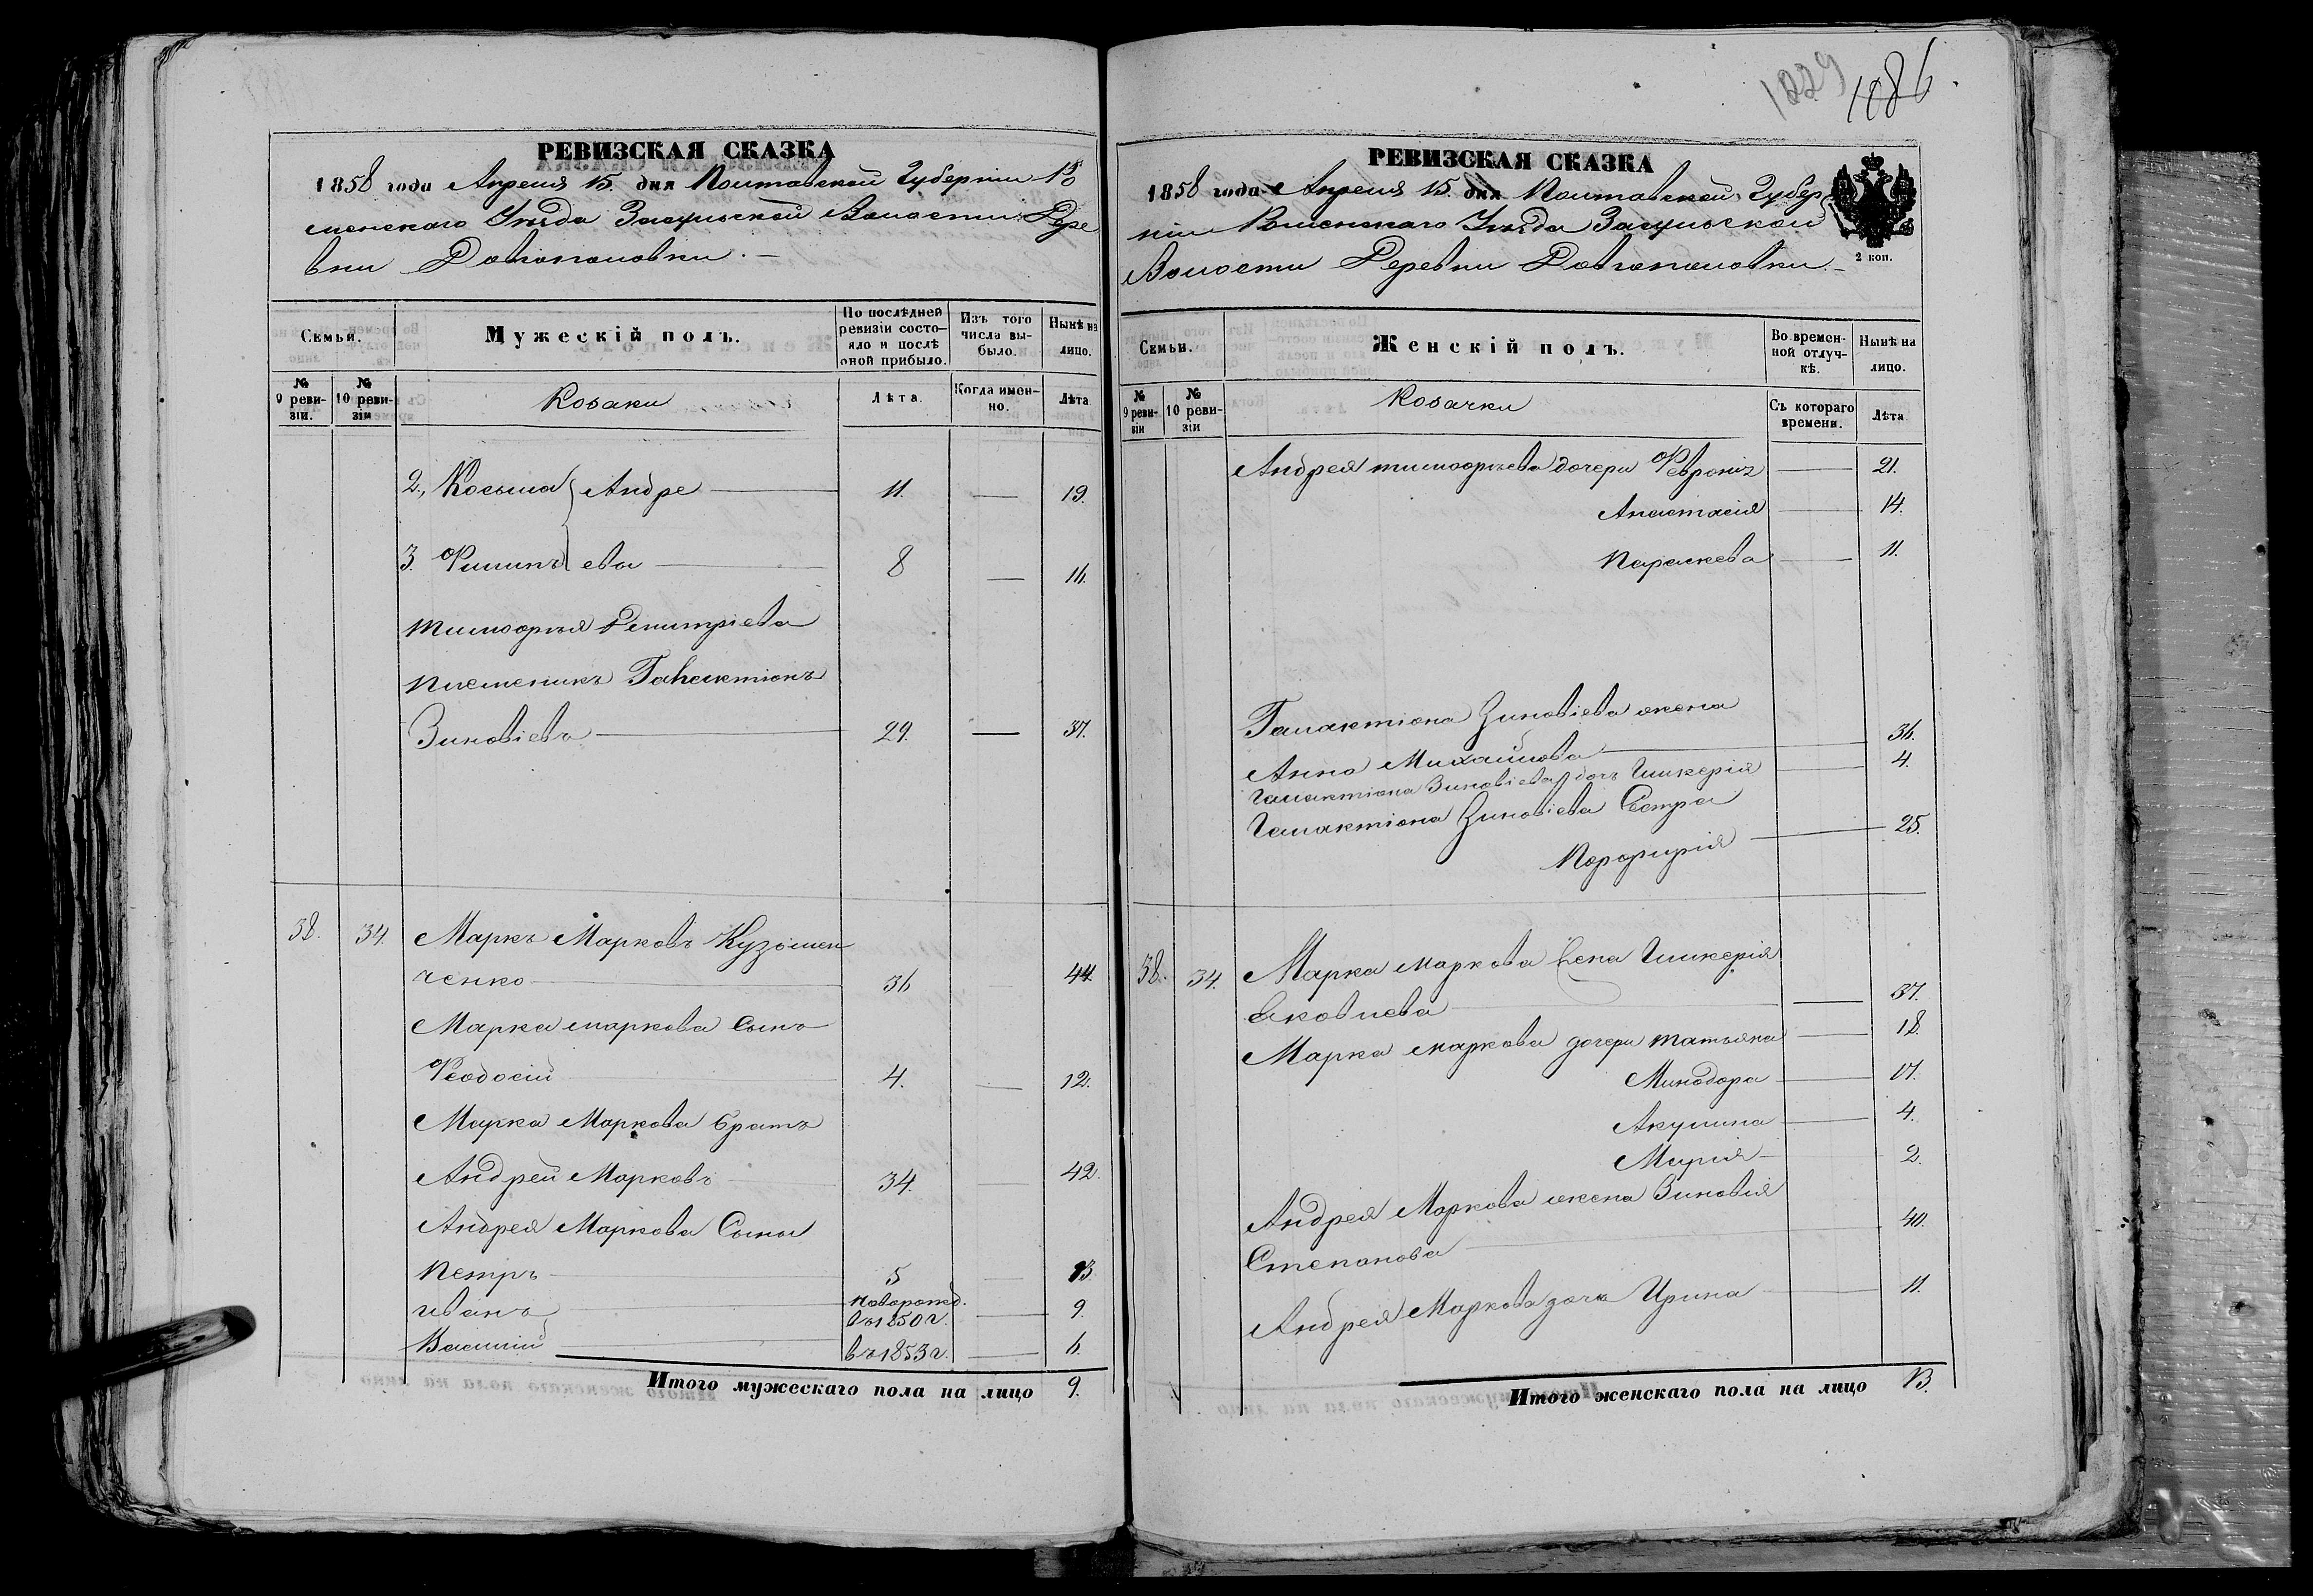 РЕВИЗСКАЯ СКАЗКА
1858 года Апреля 15. дня Полтавской Губерніи Ро
менскаго Уѣзда Засульской Волости Дере
вни Довгополовки. –
Семьи.
Мужескій полъ.
По послѣдней ревизіи состояло и послѣ оной прибыло.
Изъ того числа выбыло.
Нынѣ на лицо.
№ 9 ревизіи.
№ 10 ревизіи
Козаки
Лѣта.
Когда именно.
Лѣта
2., Косьма } Андре — 11. — 19.
3. Филипъ } ева — 8 — 16.
Тимофея Демитріева
племеникъ Галактіонъ
Зиновіевъ — 29. — 37.
38. 34. Маркъ Марковъ Кузьмен
ченко — 36 44.
Марка Маркова Сынъ
Феодосій 4. — 12.
Марка Маркова братъ
Андрей Марковъ 34. 42.
Андрея Маркова Сыны
Петръ 5 13
Иванъ новорожд. въ 1850 г. — 9.
Василій — въ 1853 г. — 6.
Итого мужескаго пола на лицо 9.
1229
1086.
РЕВИЗСКАЯ СКАЗКА
1858 года Апреля 15. дня Полтавской Губер
ніи Роменскаго Уѣзда Засульской
Волости Деревни Довгополовки. –
2 коп.
Семьи.
Женскій полъ.
Во временной отлучкѣ.
Нынѣ на лицо.
№ 9 ревизіи
№ 10 ревизіи
Козачки
Съ котораго времени.
Лѣта
Андрея Тимофеева дочери Февронія — 21.
Анастасія — 14.
Параскева — 11.
Галактіона Зиновіева жена
Анна Михайлова — 36.
Галактіона Зиновіева дочь Гликерія — 4.
Галактіона Зиновіева Сестра
Порфирія — 25.
38. 34. Марка Маркова жена Гликерія
Яковлева — 37.
Марка Маркова дочери Татьяна — 18
Минодора — 17.
Акулина — 4.
Марія — 2.
Андрея Маркова жена Зиновія
Степанова — 40.
Андрея Маркова дочь Ирина — 11.
Итого женскаго пола на лицо 13.